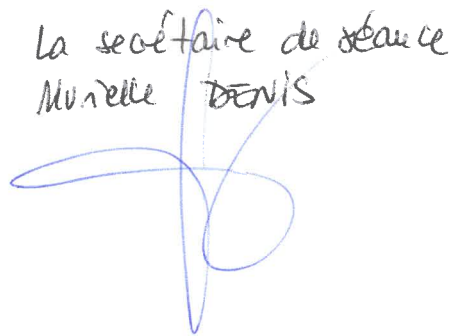 La secrétaire de séance
Murielle DENIS